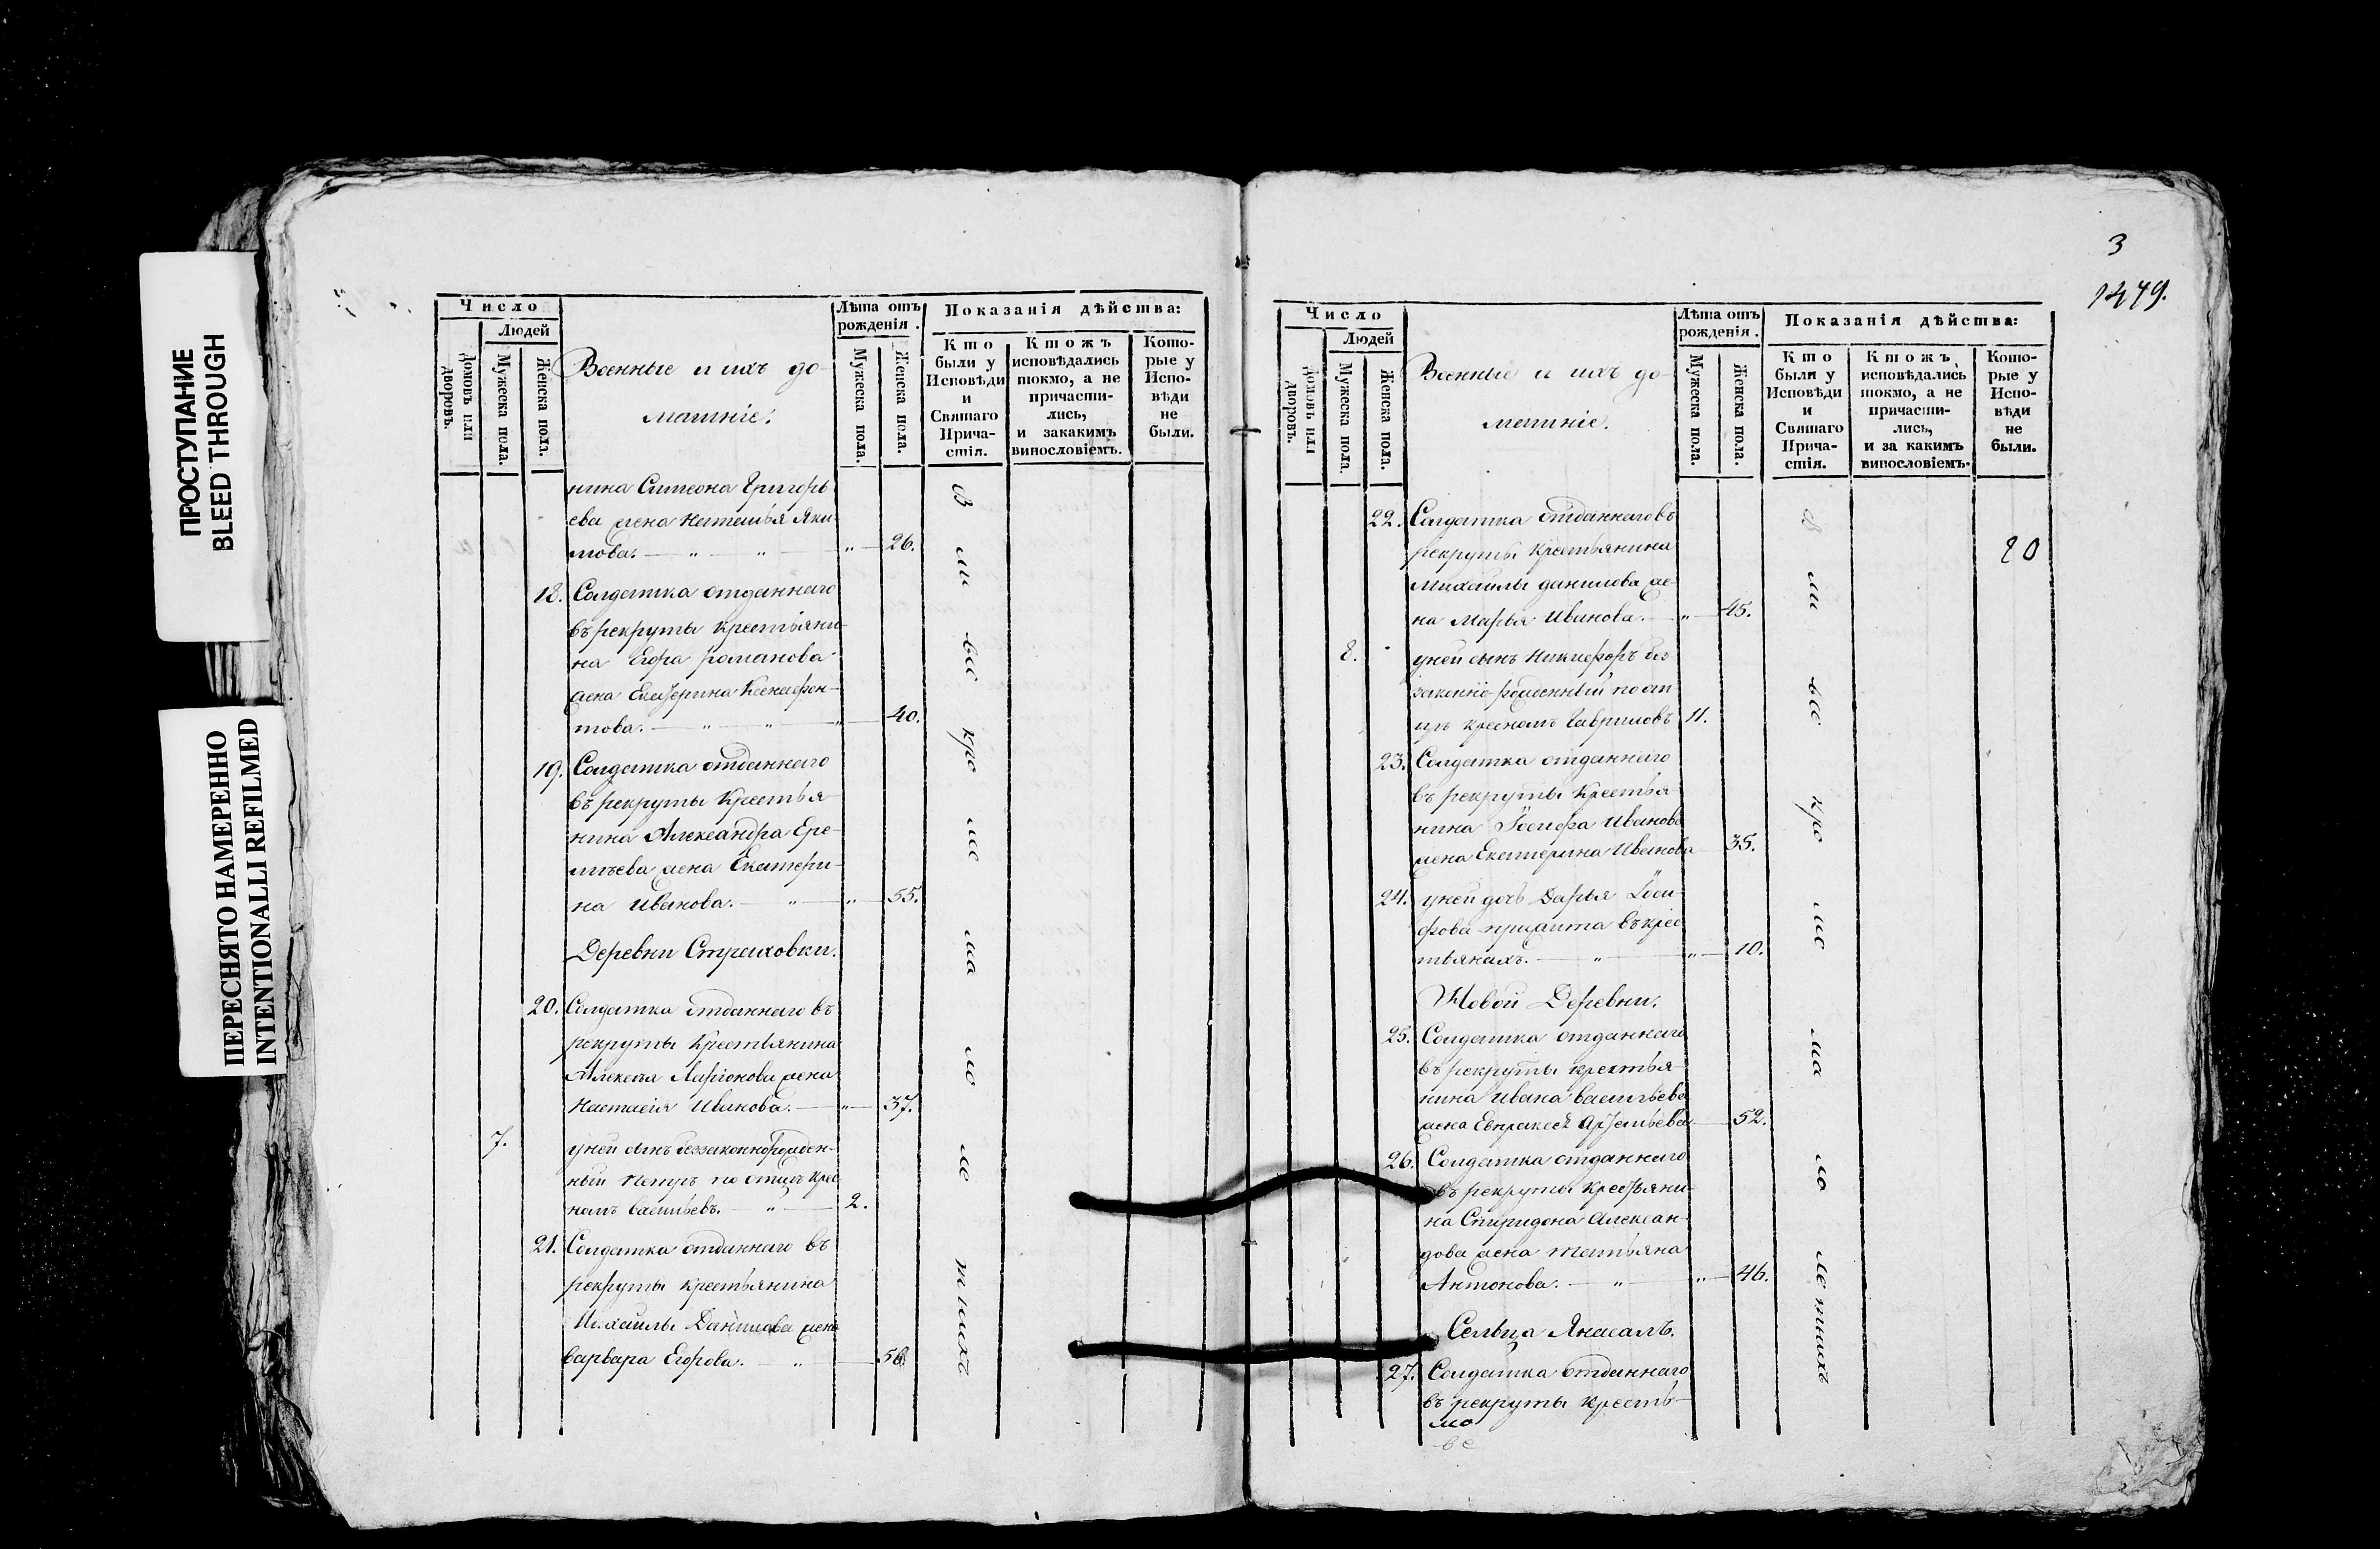 ПРОСТУПАНИЕ
BLEED THROUGH
ПЕРЕСНЯТО НАМЕРЕННО
INTENTIONALLI REFILMED
Число
Людей
Домовъ или дворовъ.
Мужеска пола.
Женска пола.
Военные и ихъ до-
машніе.
Лѣта отъ
рожденія.
Мужеска пола.
Женска пола.
Показанія дѣйства:
Кто
были у
Исповѣди
и
Святаго
Прича-
стія.
Ктожъ
исповѣдались
токмо, а не
причасти-
лись,
и закакимъ
винословіемъ.
Кото-
рые у
Испо-
вѣди
не
были.
нина Симеона Григорь
ева жена Наталья Яки
мова. " " " 26.
18. Солдатка отданнаго
въ рекруты Крестьяни-
на Егора романова
жена Екатерина Ксенофон-
това. " " " 40.
19. Солдатка отданнаго
въ рекруты Крестья-
нина Александра Ере-
мѣева жена Екатери-
на Иванова. " " 55.
Деревни Стреиховки.
20. Солдатка отданнаго въ
рекруты Крестьянина
Алексѣя Ларіонова жена
Настасія Иванова. " 37.
7. уней сынъ беззаконнорожден-
ный Петръ по отцѣ крес
номъ Васильевъ. " 2.
21. Солдатка отданнаго въ
рекруты крестьянина
Михайлы Данилова жена
варвара Егорова. " 56.
В
ся
кро
ме
ма
ло
ле
тныхъ
3
1479.
Число
Людей
Домовъ или дворовъ.
Мужеска пола.
Женска пола.
Военные и ихъ до-
машніе.
Лѣта отъ
рожденія.
Мужеска пола.
Женска пола.
Показанія дѣйства:
Кто
были у
Исповѣди
и
Святаго
Прича-
стія.
Ктожъ
исповѣдались
токмо, а не
причасти-
лись,
и за какимъ
винословіемъ.
Кото-
рые у
Испо-
вѣди
не
были.
22. Солдатка отданнаго въ
рекруты Крестьянина
Михайлы данилова же-
на Марья Иванова. " 45.
8. уней сынъ Никифоръ без
законно-рожденный по от
цѣ кресномъ Гавриловъ 11.
23. Солдатка отданнаго
въ рекруты Крестья-
нина Іосифа Иванова
жена Екатерина Иванова 35.
24. уней дочь Дарья Іоси-
фова прижита въ крес
тьянахъ. " " 10.
Новой Деревни.
25. Солдатка отданнаго
въ рекруты крестья-
нина Ивана Васильева
жена Евпраксѣя Артемьева 52.
26. Солдатка отданнаго
въ рекруты Крестьяни-
на Спиридона Алексан-
дова жена татьяна
Антонова. " " 46.
Сельца
27. Солдатка отданнаго
въ рекруты Кресть-
кро
ме
ма
ло
ле тныхъ
20